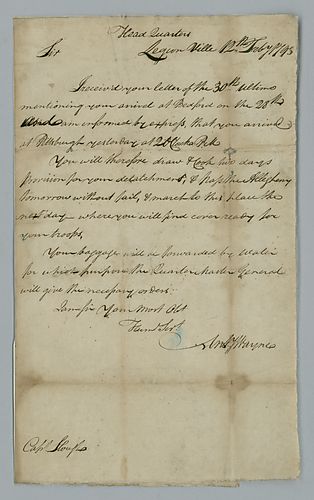 Head Quarters
Sir Legion Ville 12th Feby 1793
I receiv'd your letter of the 30th ultimo
mentioning your arrival at Bedford on the 28th
am informed by express, that you arrived
at Pittsburgh yesterday at 2 OClocks P.M.
You will therefore draw & Cook two days
provision for your detachment, & pass the Allegheny
tomorrow without fail, & march to this place the
next day where you will find cover ready for
your troops.
Your baggage will be forwarded by Water
for which purpose the Quarter Master General
will give the necessary orders.
I am Sir Your Most Obt
Humb Servt
Anty Wayne
Capt Slough